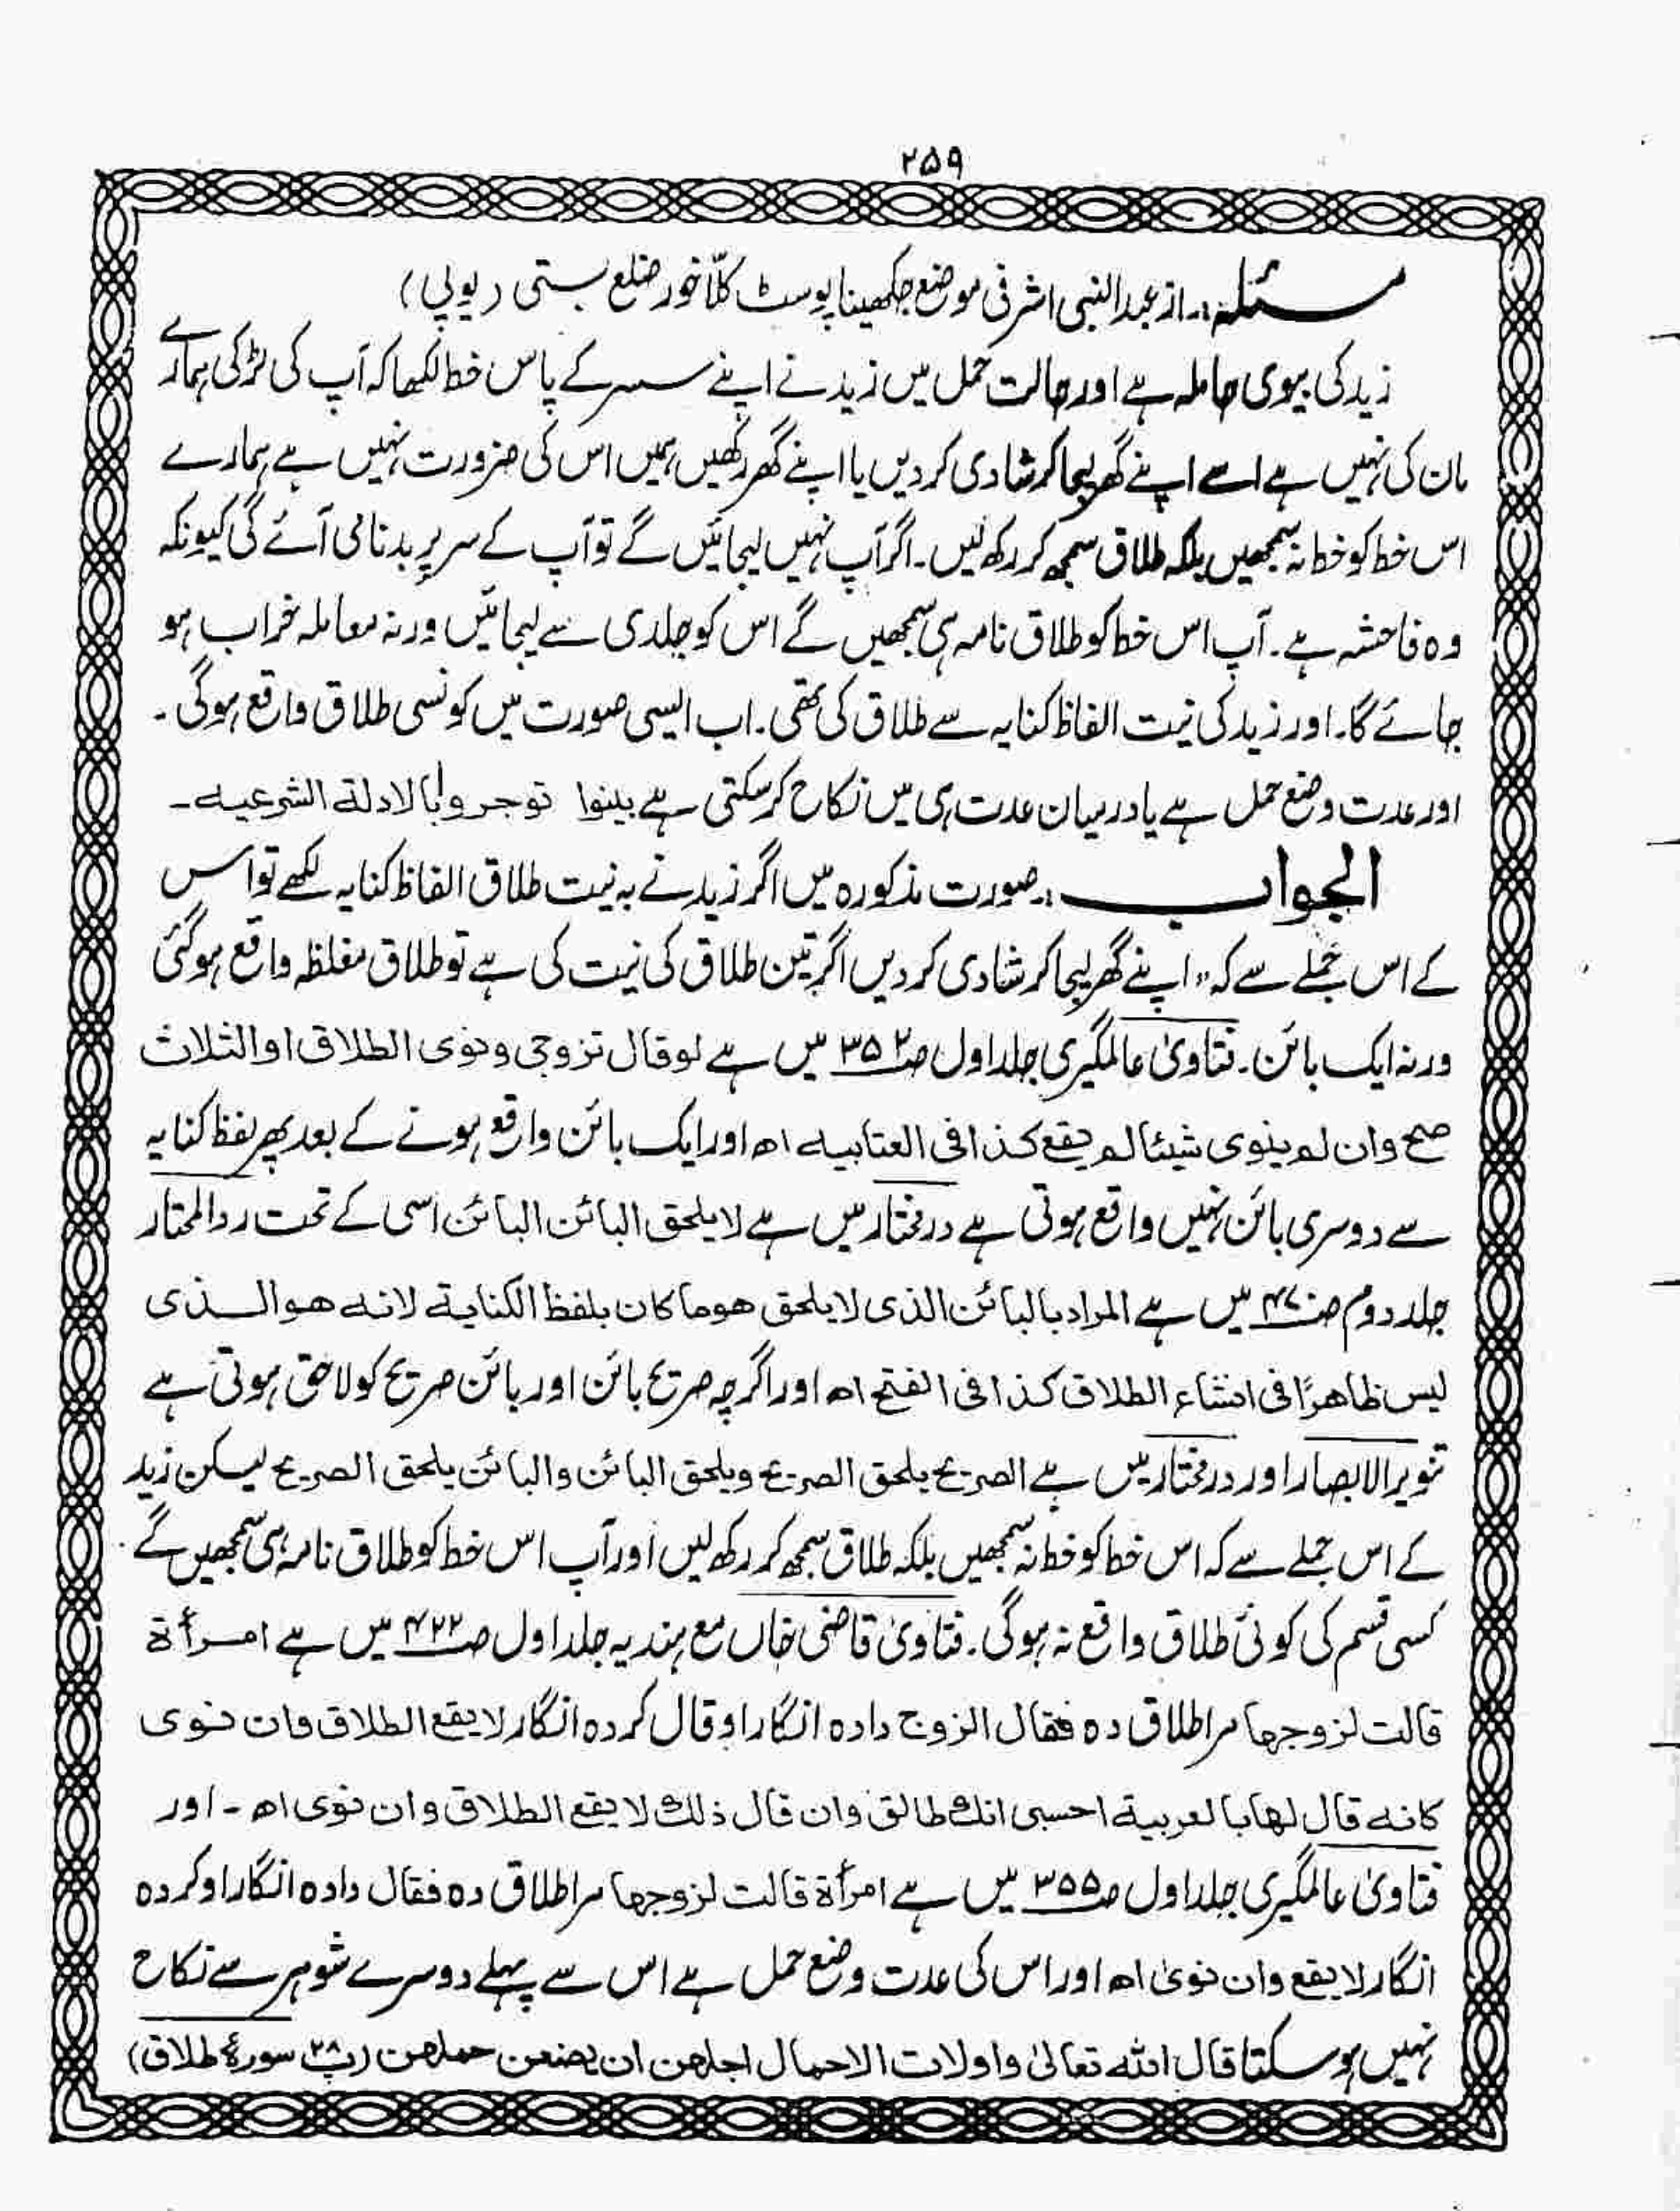 ۲۵۹
مسئلہ:۔ از عبدالنبی اشرفی موضع جکھینا پوسٹ کلاّ خور ضلع بستی (یوپی)
زید کی بیوی حاملہ ہے اور حالت حمل میں زید نے اپنے سسر کے پاس خط لکھا کہ آپ کی لڑکی ہمارے
مان کی نہیں ہے اسے اپنے گھر لیجا کر شادی کر دیں یا اپنے گھر رکھیں ہمیں اس کی ضرورت نہیں ہے ہمارے
اس خط کو خط نہ سمجھیں بلکہ طلاق سمجھ کر رکھ لیں۔ اگر آپ نہیں لیجائیں گے تو آپ کے سر پر بدنامی آئے گی کیونکہ
وہ فاحشہ ہے۔ آپ اس خط کو طلاق نامہ ہی سمجھیں گے اس کو جلدی سے لیجائیں ورنہ معاملہ خراب ہو
جائے گا۔ اور زید کی نیت الفاظ کنایہ سے طلاق کی تھی۔ اب ایسی صورت میں کونسی طلاق واقع ہوگی۔
اور عدت وضع حمل ہے یا درمیان عدت ہی میں نکاح کر سکتی ہے بینوا توجروا بالادلۃ الشرعیہ۔
الجواب:۔ صورت مذکورہ میں اگر زید نے بہ نیت طلاق الفاظ کنایہ لکھے تو اس
کے اس جملے سے کہ "اپنے گھر لیجا کر شادی کر دیں اگر تین طلاق کی نیت کی ہے تو طلاق مغلظہ واقع ہوگئی
ورنہ ایک بائن۔ فتاویٰ عالمگیری جلد اول ص۳۵۲ میں ہے لو قال تزوجی ونوی الطلاق او الثلاث
صح وان لم ینوی شیئا لم یقع کذا فی العتابیہ اھ اور ایک بائن واقع ہونے کے بعد پھر لفظ کنایہ
سے دوسری بائن نہیں واقع ہوتی ہے درمختار میں ہے لا یلحق البائن البائن اسی کے تحت ردالمحتار
جلد دوم ص۴۷۰ میں ہے المراد بالبائن الذی لا یلحق ھو ما کان بلفظ الکنایۃ لانہ ھو الذی
لیس ظاھرًا فی انشاء الطلاق کذا فی الفتح اھ اور اگرچہ صریح بائن اور بائن صریح کو لاحق ہوتی ہے
تنویر الابصار اور درمختار میں ہے الصریح یلحق الصریح ویلحق البائن والبائن یلحق الصریح لیکن زید
کے اس جملے سے کہ اس خط کو خط نہ سمجھیں بلکہ طلاق سمجھ کر رکھ لیں اور آپ اس خط کو طلاق نامہ ہی سمجھیں گے
کسی قسم کی کوئی طلاق واقع نہ ہوگی۔ فتاویٰ قاضی خاں مع ہندیہ جلد اول ص۴۲۲ میں ہے امرأۃ
قالت لزوجھا مرا طلاق دہ فقال الزوج دادہ انگار او قال کردہ انگار لا یقع الطلاق وان نوی
کانہ قال لھا بالعربیۃ احسبی انک طالق وان قال ذلک لا یقع الطلاق وان نوی اھ۔ اور
فتاویٰ عالمگیری جلد اول ص۳۵۵ میں ہے امرأۃ قالت لزوجھا مرا طلاق دہ فقال دادہ انگار او کردہ
انگار لا یقع وان نویٰ اھ اور اس کی عدت وضع حمل ہے اس سے پہلے دوسرے شوہر سے نکاح
نہیں ہو سکتا قال اللہ تعالیٰ واولات الاحمال اجلھن ان یضعن حملھن (پ۲۸ سورۂ طلاق)